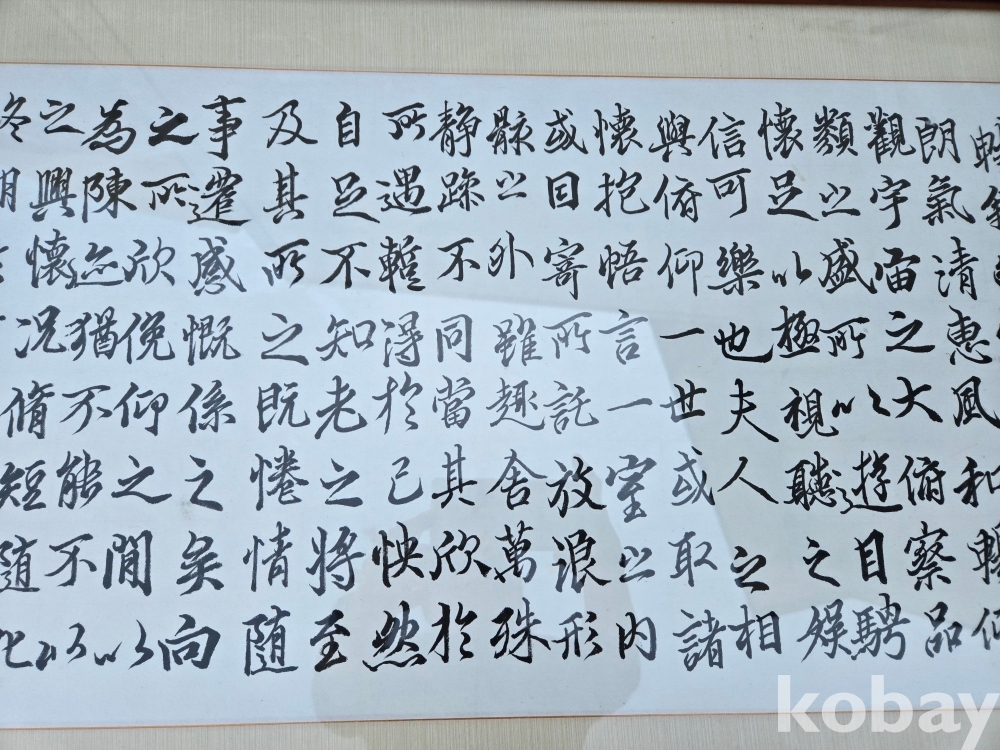 朗氣清惠風和暢仰
觀宇宙之大俯察品
類之盛所以遊目騁
懷足以極視聽之娛
信可樂也夫人之相
與俯仰一世或取諸
懷抱悟言一室之內
或因寄所託放浪形
骸之外雖趣舍萬殊
靜躁不同當其欣於
所遇蹔得於己怏然
自足不知老之將至
及其所之既惓情隨
事遷感慨係之矣向
之所欣俛仰之間以
為陳迹猶不能不以
之興懷況脩短隨化
終期
kobay